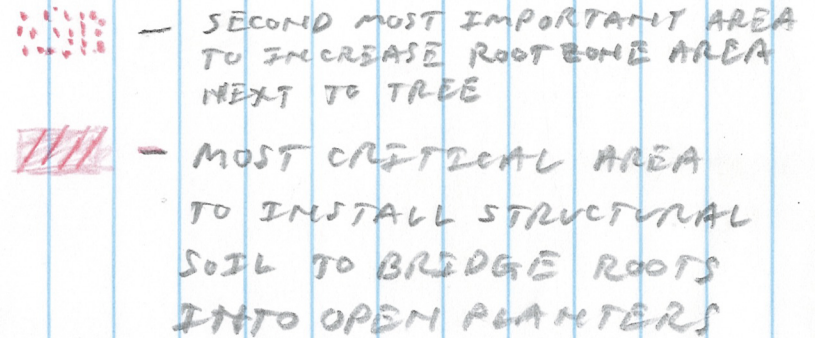 - SECOND MOST IMPORTANT AREA
TO INCREASE ROOT ZONE AREA
NEXT TO TREE
- MOST CRITICAL AREA
TO INSTALL STRUCTURAL
SOIL TO BRIDGE ROOTS
INTO OPEN PLANTERS